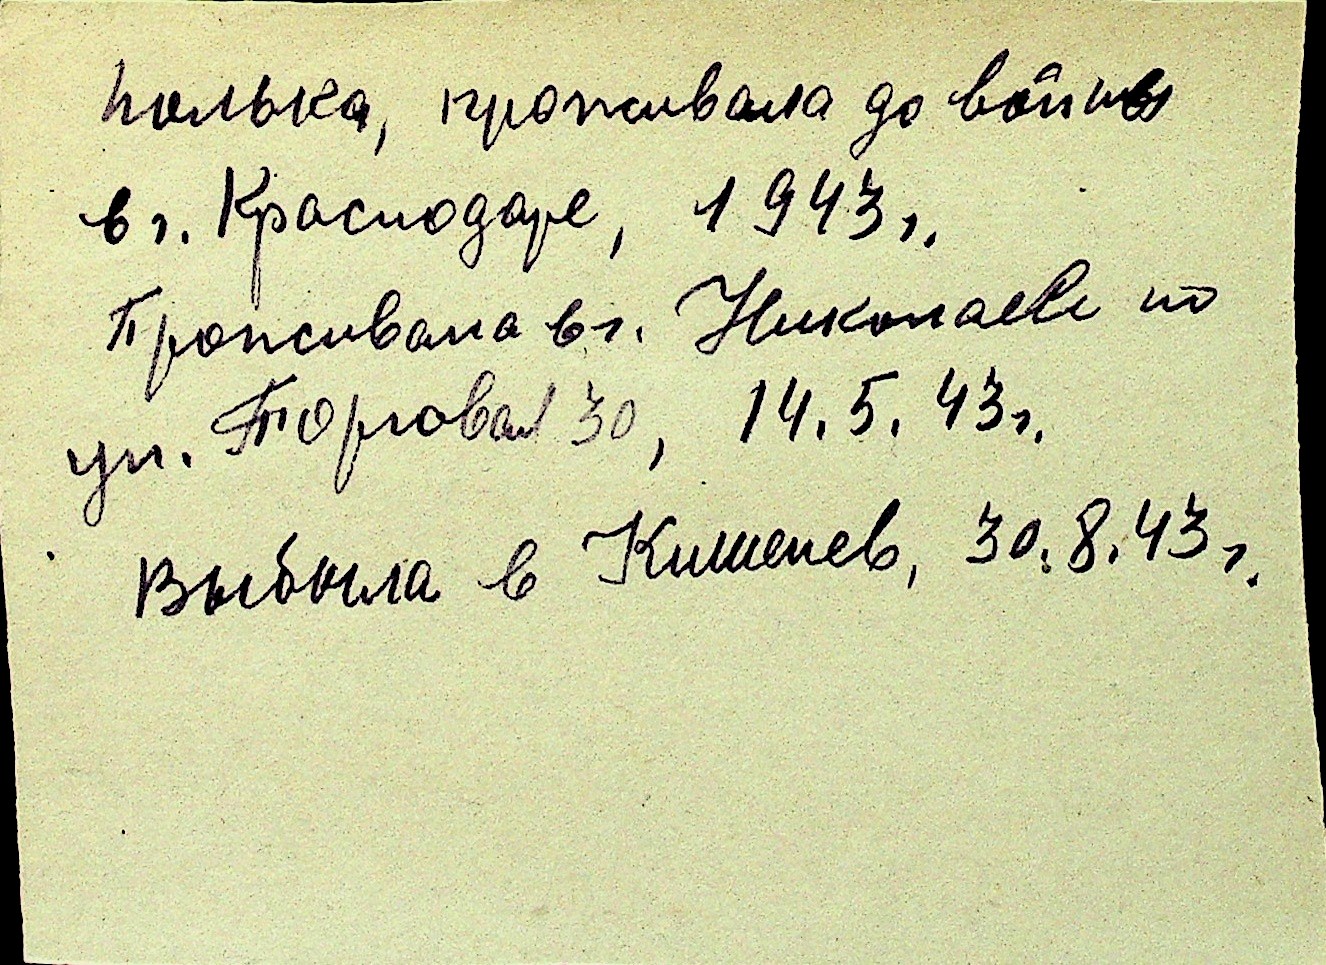 полька, проживала до войны
в г. Краснодаре, 1943 г.
Проживала в г. Николаеве по
ул. Торговая 30, 14.5.43 г.
Выбыла в Кишенев, 30.8.43 г.